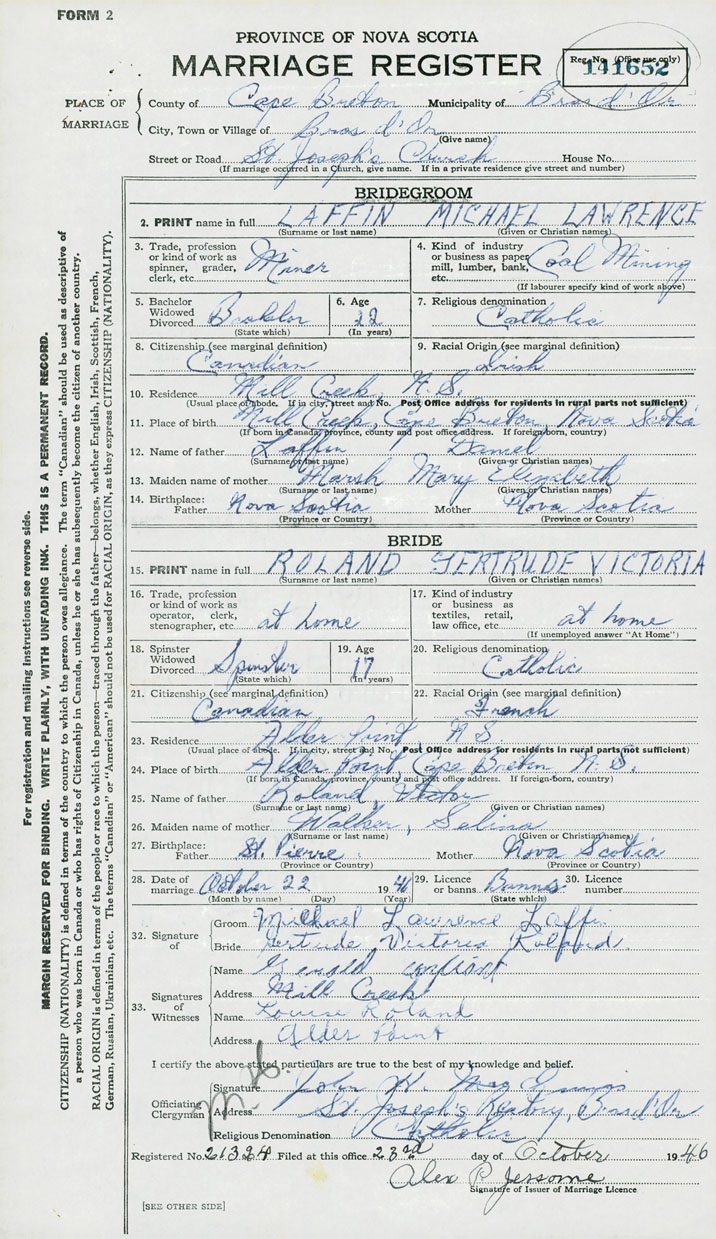 FORM 2
PROVINCE OF NOVA SCOTIA
MARRIAGE REGISTER
Reg. No. (Office use only)
141652
PLACE OF MARRIAGE
County of Cape Breton Municipality of Bras d'Or
City, Town or Village of Bras d'Or
(Give name)
Street or Road St Joseph's Church House No.
(If marriage occurred in a Church, give name. If in a private residence give street and number)
BRIDEGROOM
2. PRINT name in full LAFFIN MICHAEL LAWRENCE
(Surname or last name) (Given or Christian names)
3. Trade, profession or kind of work as spinner, grader, clerk, etc. Miner
4. Kind of industry or business as paper mill, lumber, bank, etc. Coal Mining
(If labourer specify kind of work above)
5. Bachelor Widowed Divorced Bachelor
(State which)
6. Age 22
(In years)
7. Religious denomination
Catholic
8. Citizenship (see marginal definition)
Canadian
9. Racial Origin (see marginal definition)
Irish
10. Residence Mill Creek, N.S.
(Usual place of abode. If in city, street and No. Post Office address for residents in rural parts not sufficient)
11. Place of birth Mill Creek, Cape Breton, Nova Scotia
(If born in Canada, province, county and post office address. If foreign-born, country)
12. Name of father Laffin, Daniel
(Surname or last name) (Given or Christian names)
13. Maiden name of mother Marsh Mary Elizabeth
(Surname or last name) (Given or Christian names)
14. Birthplace: Father Nova Scotia Mother Nova Scotia
(Province or Country) (Province or Country)
BRIDE
15. PRINT name in full ROLAND GERTRUDE VICTORIA
(Surname or last name) (Given or Christian names)
16. Trade, profession or kind of work as operator, clerk, stenographer, etc. at home
17. Kind of industry or business as textiles, retail, law office, etc. at home
(If unemployed answer "At Home")
18. Spinster Widowed Divorced Spinster
(State which)
19. Age 17
(In years)
20. Religious denomination
Catholic
21. Citizenship (see marginal definition)
Canadian
22. Racial Origin (see marginal definition)
French
23. Residence Alder Point N.S.
(Usual place of abode. If in city, street and No. Post Office address for residents in rural parts not sufficient)
24. Place of birth Alder Point, Cape Breton N.S.
(If born in Canada, province, county and post office address. If foreign-born, country)
25. Name of father Roland, Victor
(Surname or last name) (Given or Christian names)
26. Maiden name of mother Walker, Selina
(Surname or last name) (Given or Christian names)
27. Birthplace: Father St. Pierre Mother Nova Scotia
(Province or Country) (Province or Country)
28. Date of marriage October 22 1946
(Month by name) (Day) (Year)
29. Licence or banns Banns
(State which)
30. Licence number
32. Signature of
Groom Michael Lawrence Laffin
Bride Gertrude Victoria Roland
33. Signatures of Witnesses
Name
Address Mill Creek
Name Louise Roland
Address Alder Point
I certify the above stated particulars are true to the best of my knowledge and belief.
Officiating Clergyman
Signature John W.
Address St. Joseph's Rectory, Bras d'Or
Religious Denomination Catholic
Registered No. 21324 Filed at this office 23rd day of October 1946
Alex P Jessome
Signature of Issuer of Marriage Licence
[SEE OTHER SIDE]
For registration and mailing instructions see reverse side.
MARGIN RESERVED FOR BINDING. WRITE PLAINLY, WITH UNFADING INK. THIS IS A PERMANENT RECORD.
CITIZENSHIP (NATIONALITY) is defined in terms of the country to which the person owes allegiance. The term "Canadian" should be used as descriptive of
a person who was born in Canada or who has rights of Citizenship in Canada, unless he or she has subsequently become the citizen of another country.
RACIAL ORIGIN is defined in terms of the people or race to which the person—traced through the father—belongs, whether English, Irish, Scottish, French,
German, Russian, Ukrainian, etc. The terms "Canadian" or "American" should not be used for RACIAL ORIGIN, as they express CITIZENSHIP (NATIONALITY).